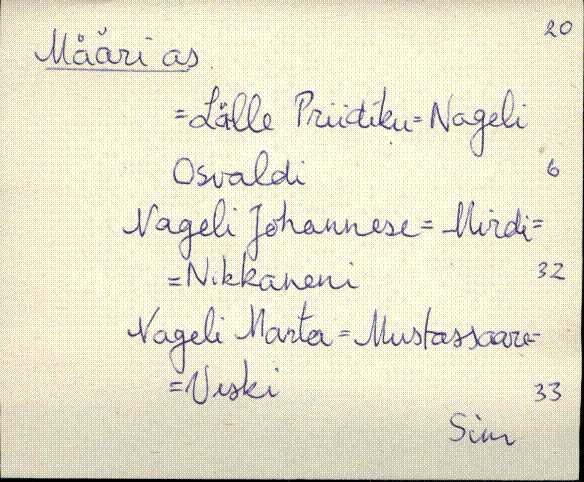 20
Määri as.
=Lälle Priidiku=Nageli
Osvaldi 6
Nageli Johannese=Mirdi=
=Nikkaneni 32
Nageli Marta=Mustassaare=
=Viski 33
Sim